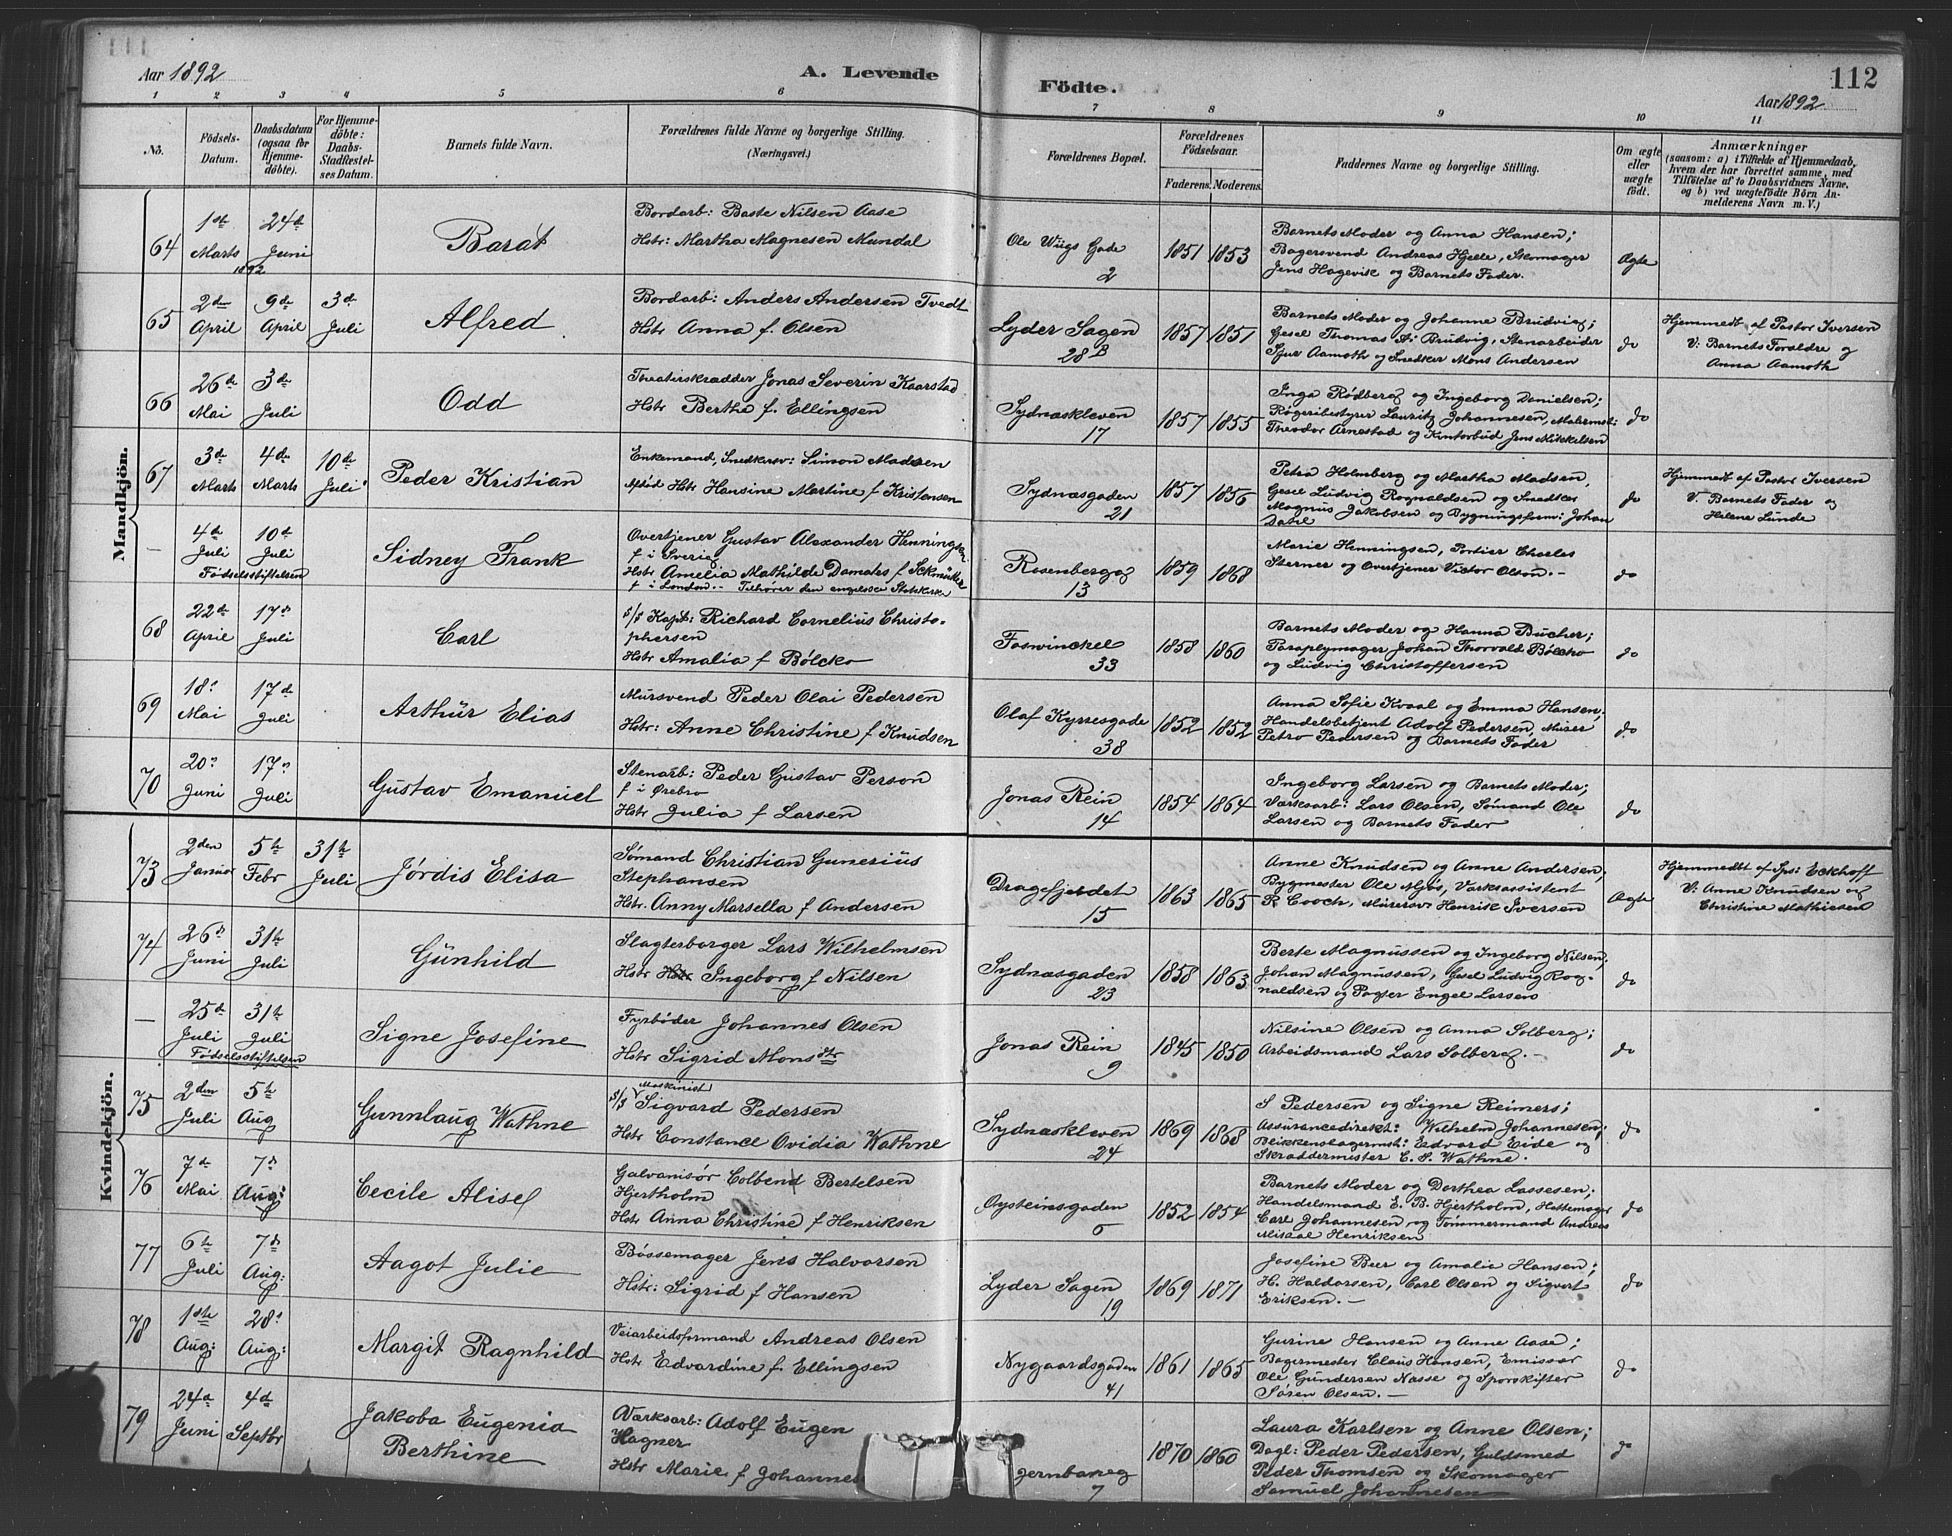 Aar 1892
A. Levende
Födte.
112
Aar 1892.
1 2 3 4 5 6 7 8 9 10 11
No.
Födsels-Datum.
Daabsdatum (ogsaa for Hjemmedöbte).
For Hjemmedöbte: Daabs-Stadfæstelses Datum.
Barnets fulde Navn.
Forældrenes fulde Navne og borgerlige Stilling.
(Næringsvei.)
Forældrenes Bopæl.
Forældrenes Födselsaar.
Faderens. Moderens.
Faddernes Navne og borgerlige Stilling.
Om ægte eller uægte födt.
Anmærkninger
(saasom: a) i Tilfælde af Hjemmedaab, hvem der har forrettet samme, med Tilföielse af to Daabsvidners Navne, og b) ved uægtefödte Börn Anmelderens Navn m. V.)
Mandkjön.
64 1ste Marts 1892 24de Juni Barat
Bordarb: Baste Nilsen Aase
Hstr: Martha Magnesen Mundal
Ole Wiigs Gade 2 1851 1853
Barnets Moder og Anna Hansen;
Bagersvend Andreas Hjelle, Skomager
Jens Hagevik og Barnets Fader.
Ægte
65 2den April 9de April 3de Juli Alfred
Bordarb: Anders Andersen Tvedt
Hstr Anna f. Olsen
Lyder Sagen 28B 1857 1851
Barnets Moder og Johanne Brudvig;
Gesel Thomas A. Brudvig, Stenarbeider
Sjur Aamoth og Snedker Mons Andersen
do
Hjemmedt af Pastor Iversen
V. Barnets Forældre og
Anna Aamoth
66 26de Mai 3die Juli Odd
Tovatirskrædder Jonas Severin Kaarstad
Hstr Bertha f. Ellingsen
Sydnæskleven 17 1857 1855
Inga Rödberg og Ingeborg Danielsen;
Rögeribestyrer Lauritz Johannesen, Malermst:
Theodor Arnestad og Kontorbud Jens Mikkelsen
do
67 3die Marts 4de Marts 10de Juli Peder Kristian
Enkemand, Snedkersv: Simon Madsen
Afdöd Hstr Hansine Martine f Kristansen
Sydnæsgaden 21 1857 1856
Petra Holmberg og Martha Madsen,
Gesel Ludvig Rognaldsen og Snedker
Magnus Jakobsen og Bygningsform: Johan
Dahl
do
Hjemmedt af Pastor Iversen
V. Barnets Fader og
Helene Lunde
— 4de Juli 10de Juli Födselsstiftelsen Sidney Frank
Overtjener Gustav Alexander Henningsen
f i Sverig
Hstr Amelia Mathilde Damates f
f i London.- Tilhörer den engelske Statskirke
Rosenbergg 13 1859 1868
Marie Henningsen, Portier Charles
Sterner og Overtjener Victor Olson.-
do
68 22de April 17de Juli Carl
S/S Kapt: Richard Cornelius Christo-
phersen
Hstr Amalia f Bölcko
Foswinckel 33 1858 1860
Barnets Moder og Hanna Bucher;
Paraplymager Johan Thorvald Bölcko
og Ludvig Christoffersen
do
69 18de Mai 17de Juli Arthur Elias
Mursvend Peder Olai Pedersen
Hstr: Anne Christine f Knudsen
Olaf Kyrresgade 38 1852 1852
Anna Sofie Kvaal og Emma Hansen,
Handelsbetjent Adolf Pedersen, Murer
Petro Pedersen og Barnets Fader
do
70 20de Juni 17de Juli Gustav Emanuel
Stenarb: Peder Gustav Person
f i Örebro
Hstr Julia f Larsen
Jonas Rein 14 1854 1864
Ingeborg Larsen og Barnets Moder;
Værksarb: Lars Olsen, Sömand Ole
Larsen og Barnets Fader
do
Kvindekjön.
73 2den Januar 5te Febr 31te Juli Jördis Elisa
Sömand Christian Gunerius
Stephansen
Hstr. Anny Marsella f Andersen
Dragefjeldet 15 1863 1865
Anne Knudsen og Anne Andersen,
Bygmester Ole Myhs, Værksassistent
R Cooch, Murersv Henrik Iversen
Ægte
Hjemmedt af Sps: Eckhoff
V: Anne Knudsen og
Christine Mathiesen
74 26de Juni 31te Juli Gunhild
Slagterborger Lars Wilhelmsen
Hstr Ingeborg f Nilsen
Sydnæsgaden 23 1858 1863
Berte Magnussen og Ingeborg Nilsen,
Johan Magnussen, Gesel Ludvig Rog-
naldsen og Pagter Engel Larsen
do
— 25de Juli 31te Juli Födselsstiftelsen Signe Josefine
Fyrböder Johannes Olsen
Hstr Sigrid Monsdtr
Jonas Rein 9 1845 1850
Nilsine Olsen og Anna Solberg;
Arbeidsmand Lars Solberg.-
do
75 2den Juli 5te Aug Gunnlaug Wathne
S/S Maskinist Sigvard Pedersen
Hstr Constance Ovidia Wathne
Sydnæskleven 24 1869 1868
S Pedersen og Signe Reimers;
Assurancedirekt: Wilhelm Johannesen;
Blikkenslagermst: Edvard Eide og
Skræddermester E. S. Wathne.
do
76 7de Mai 7de Aug: Cecile Alisef
Galvanisör Colbend Bertelsen
Hjertholm
Hstr Anna Christine f Henriksen
Öysteinsgaden 6 1852 1854
Barnets Moder og Dorthea Lassesen;
Handelsmand E. B. Hjertholm, Hattemager
Carl Johannesen og Tömmermand Andreas
Misael Henriksen
do
77 6te Juli 7de Aug: Aagot Julie
Bössemager Jens Halvorsen
Hstr: Sigrid f Hansen
Lyder Sagen 19 1869 1871
Josefine Beer og Amalie Hansen;
H. Haldorsen, Carl Olsen og Sigvert
Eriksen.-
do
78 1ste Aug: 28de Aug: Margit Ragnhild
Veiarbeidsformand Andreas Olsen
Hstr Edvardine f. Ellingsen
Nygaardsgaden 41 1861 1865
Gurine Hansen og Anne Aase;
Bagermester Claus Hansen, Emissær
Ole Gundersen Nasse og Sporskifter
Sören Olsen.-
do
79 24de Juni 4de Septbr Jakoba Eugenia
Berthine
Værksarb: Adolf Eugen
Hagner
Hstr Marie f Johannes
jernbaneg 7 1870 1860
Laura Karlsen og Anne Olsen;
Dagl: Peder Pedersen, Guldsmed
Peder Thomsen og Skomager
Samuel Johannesen
do